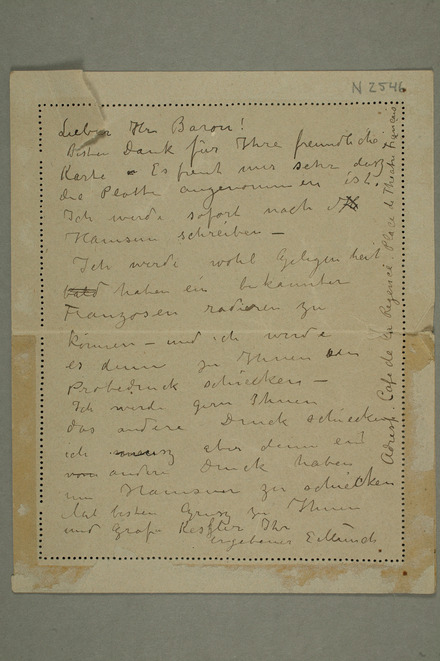 N 2546
Lieber Herr Baron!
Besten Dank für Ihre freundliche
Karte. Es freut mir sehr dasz
die Platte angenommen ist.
Ich werde sofort nach
Hamsun schreiben –
Ich werde wohl Gelegenheit
bald haben ein bekannter
Franzosen radieren zu
können – und ich werde
es denn zu Ihnen den
Probedruck schicken –
Ich werde gern Ihnen
das andere Druck schicken
ich aber denn ein
andere Druck haben
um Hamsun zu schicken
Mit besten Grusz zu Ihnen
und Graf Kessler Ihr
ergebener E Munch
Adresse. Café de la Régence. Place de Théatre Français